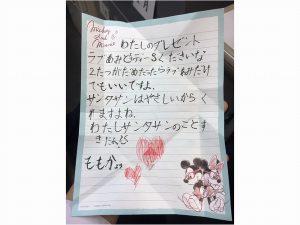 Mickey and Minnie
わたしのプレゼント
ラブあみとらディーSください
2たつがだめだったらラブあみだけ
でもいいですよ。
サンタサンはやさしいからく
れますよね、
わたしサンタサンのことす
きだ
ももかより